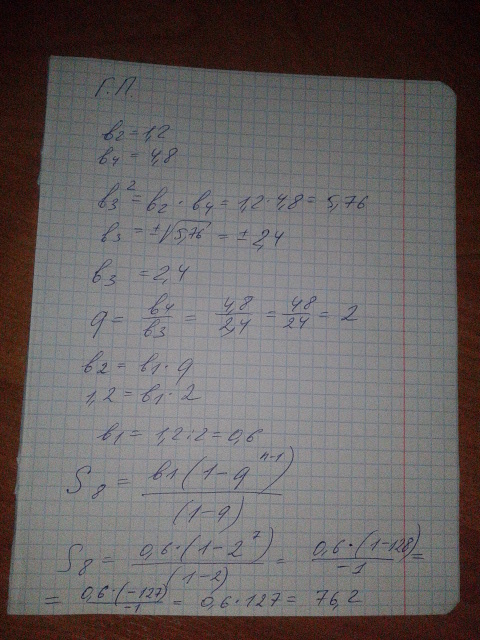 Г.П.
b₂ = 1,2
b₄ = 4,8
b₃² = b₂ · b₄ = 1,2 · 4,8 = 5,76
b₃ = ±√5,76 = ± 2,4
b₃ = 2,4
q = b₄/b₃ = 4,8/2,4 = 48/24 = 2
b₂ = b₁ · q
1,2 = b₁ · 2
b₁ = 1,2 : 2 = 0,6
S₈ = b₁(1-qⁿ⁻¹)/(1-q)
S₈ = 0,6·(1-2⁷)/(1-2) = 0,6·(1-128)/-1 =
= 0,6·(-127)/-1 = 0,6·127 = 76,2